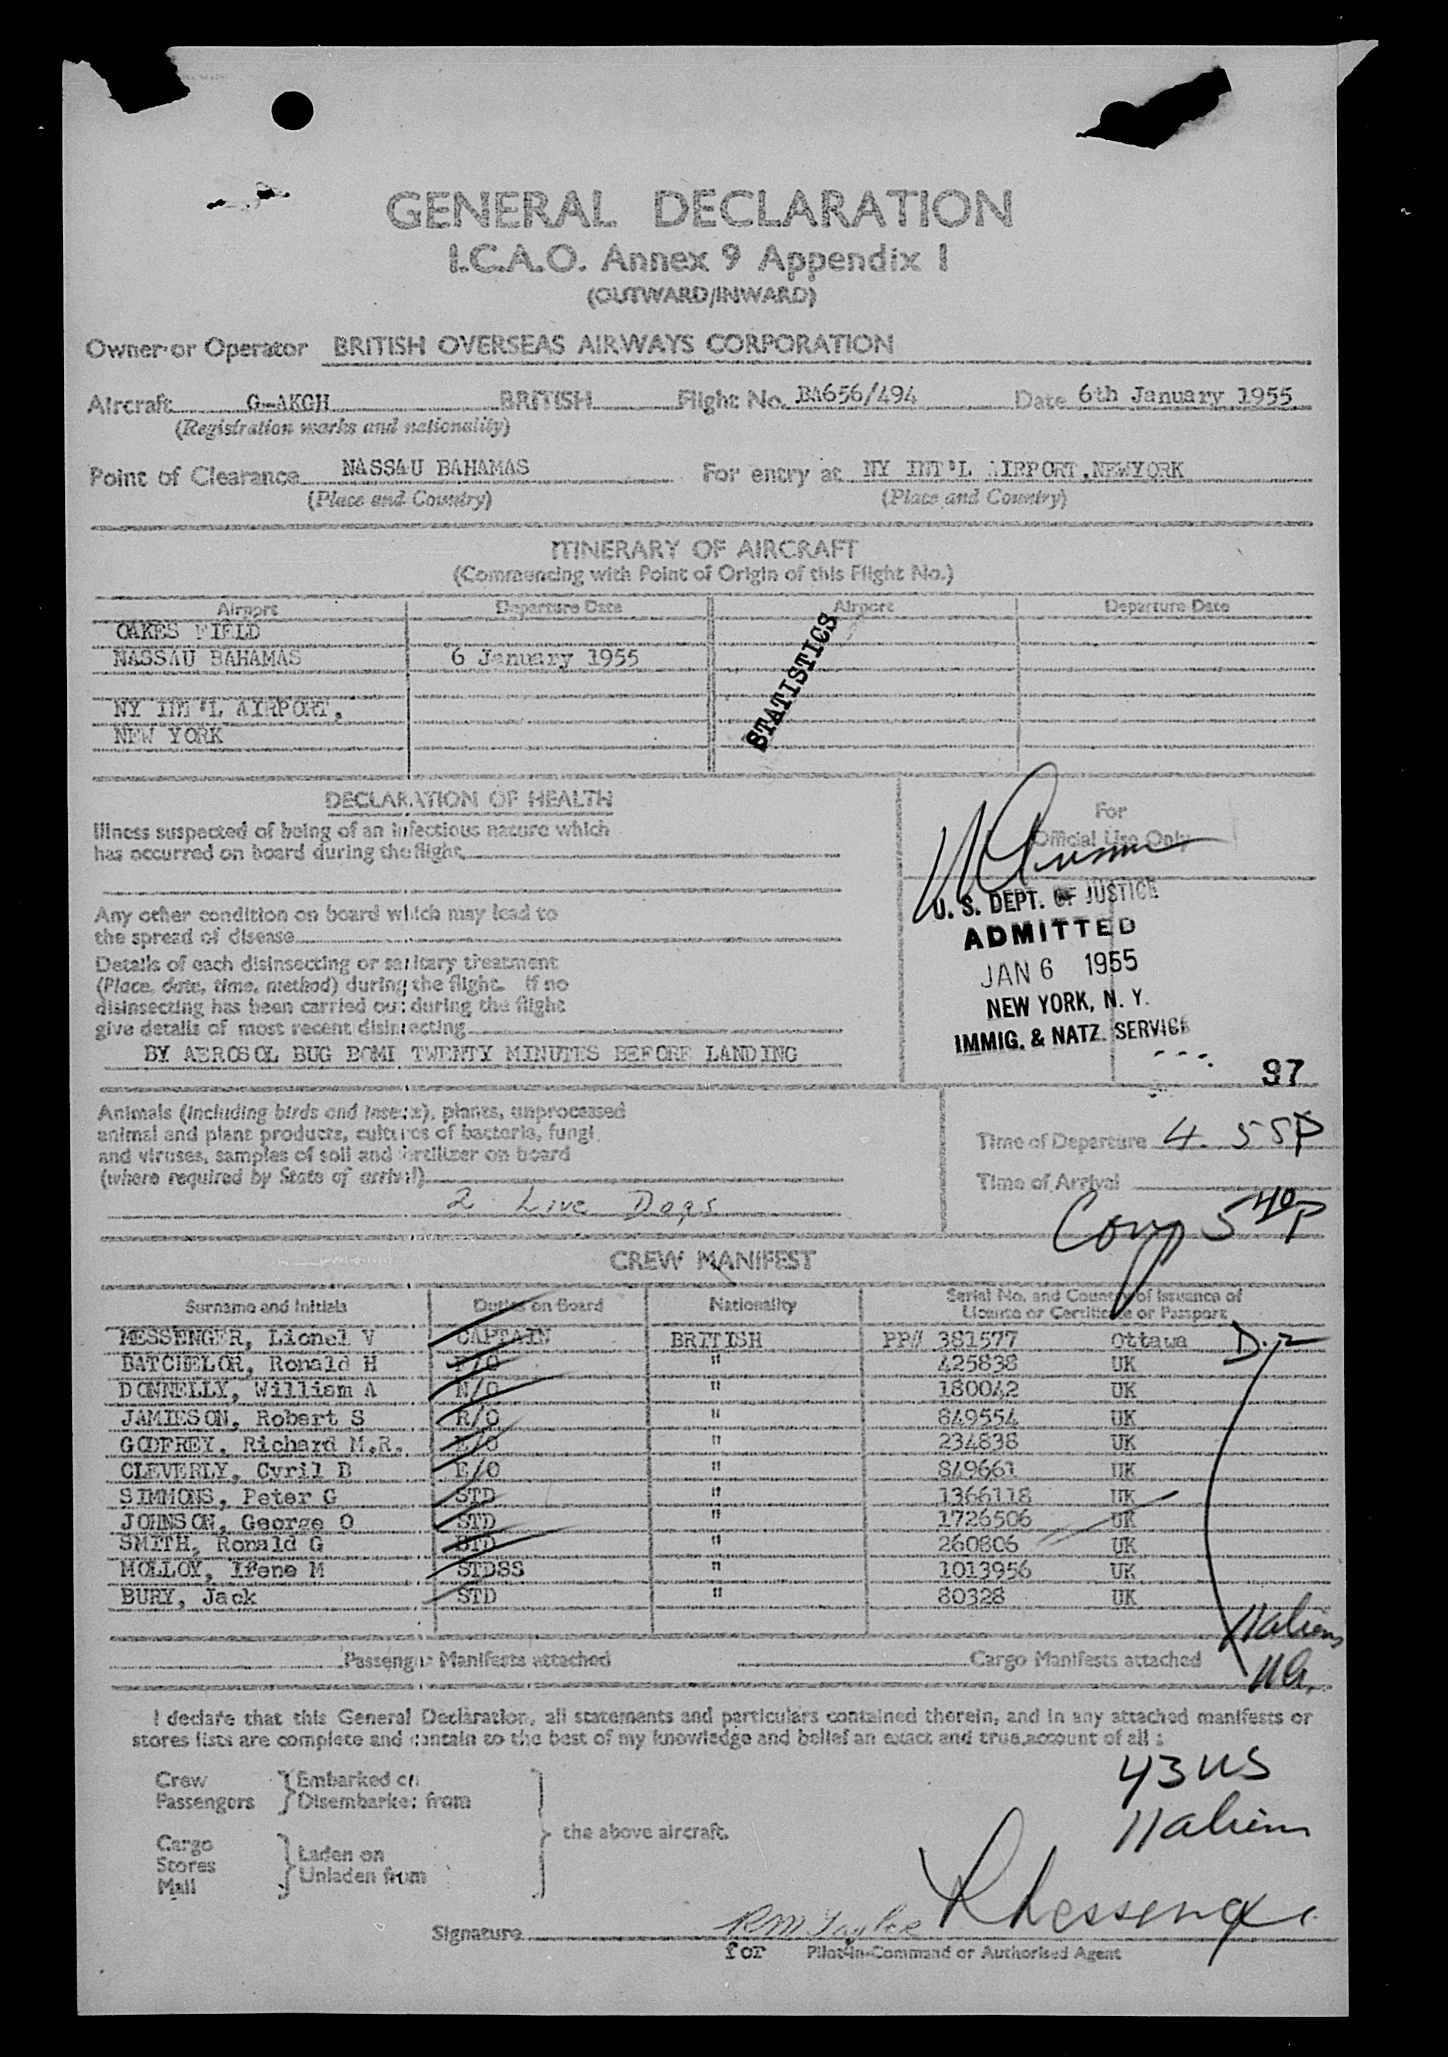 GENERAL DECLARATION
I.C.A.O. Annex 9 Appendix I
(OUTWARD/INWARD)
Owner or Operator BRITISH OVERSEAS AIRWAYS CORPORATION
Aircraft G-AKGH BRITISH Flight No. BA656/494 Date 6th January 1955
(Registration marks and nationality)
Point of Clearance NASSAU BAHAMAS For entry at NY INT'L AIRPORT,NEWYORK
(Place and Country) (Place and Country)
ITINERARY OF AIRCRAFT
(Commencing with Point of Origin of this Flight No.)
Airport Departure Date Airport Departure Date
OAKES FIELD
NASSAU BAHAMAS 6 January 1955
NY INT'L AIRPORT,
NEW YORK
STATISTICS
DECLARATION OF HEALTH
Illness suspected of being of an infectious nature which
has occurred on board during the flight
Any other condition on board which may lead to
the spread of disease
Details of each disinsecting or sanitary treatment
(Place, date, time, method) during the flight. If no
disinsecting has been carried out during the flight
give details of most recent disinsecting
BY AEROSOL BUG BOMB TWENTY MINUTES BEFORE LANDING
For
Official Use Only
U. S. DEPT. OF JUSTICE
ADMITTED
JAN 6 1955
NEW YORK, N. Y.
IMMIG. & NATZ. SERVICE
97
Animals (including birds and insects), plants, unprocessed
animal and plant products, cultures of bacteria, fungi
and viruses, samples of soil and fertilizer on board
(where required by State of arrival)
2 Live Dogs
Time of Departure 4.55P
Time of Arrival
5 40P
CREW MANIFEST
Surname and Initials Duties on Board Nationality Serial No. and Country of Issuance of
Licence or Certificate or Passport
MESSENGER, Lionel V CAPTAIN BRITISH PP# 381577 Ottawa
BATCHELOR, Ronald H F/O " 425838 UK
DONNELLY, William A N/O " 180042 UK
JAMIESON, Robert S R/O " 849554 UK
GODFREY, Richard M.R. E/O " 234838 UK
CLEVERLY, Cyril B E/O " 849661 UK
SIMMONS, Peter G STD " 1366118 UK
JOHNSON, George O STD " 1726506 UK
SMITH, Ronald G STD " 260806 UK
MOLLOY, Irene M STDSS " 1013956 UK
BURY, Jack STD " 80328 UK
11 aliens
Passenger Manifests attached Cargo Manifests attached
I declare that this General Declaration, all statements and particulars contained therein, and in any attached manifests or
stores lists are complete and contain to the best of my knowledge and belief an exact and true account of all :
43 US
11 aliens
Crew
Passengers
Embarked on
Disembarked from
Cargo
Stores
Mail
Laden on
Unladen from
the above aircraft.
Signature RM Taylor
for Pilot-in-Command or Authorised Agent